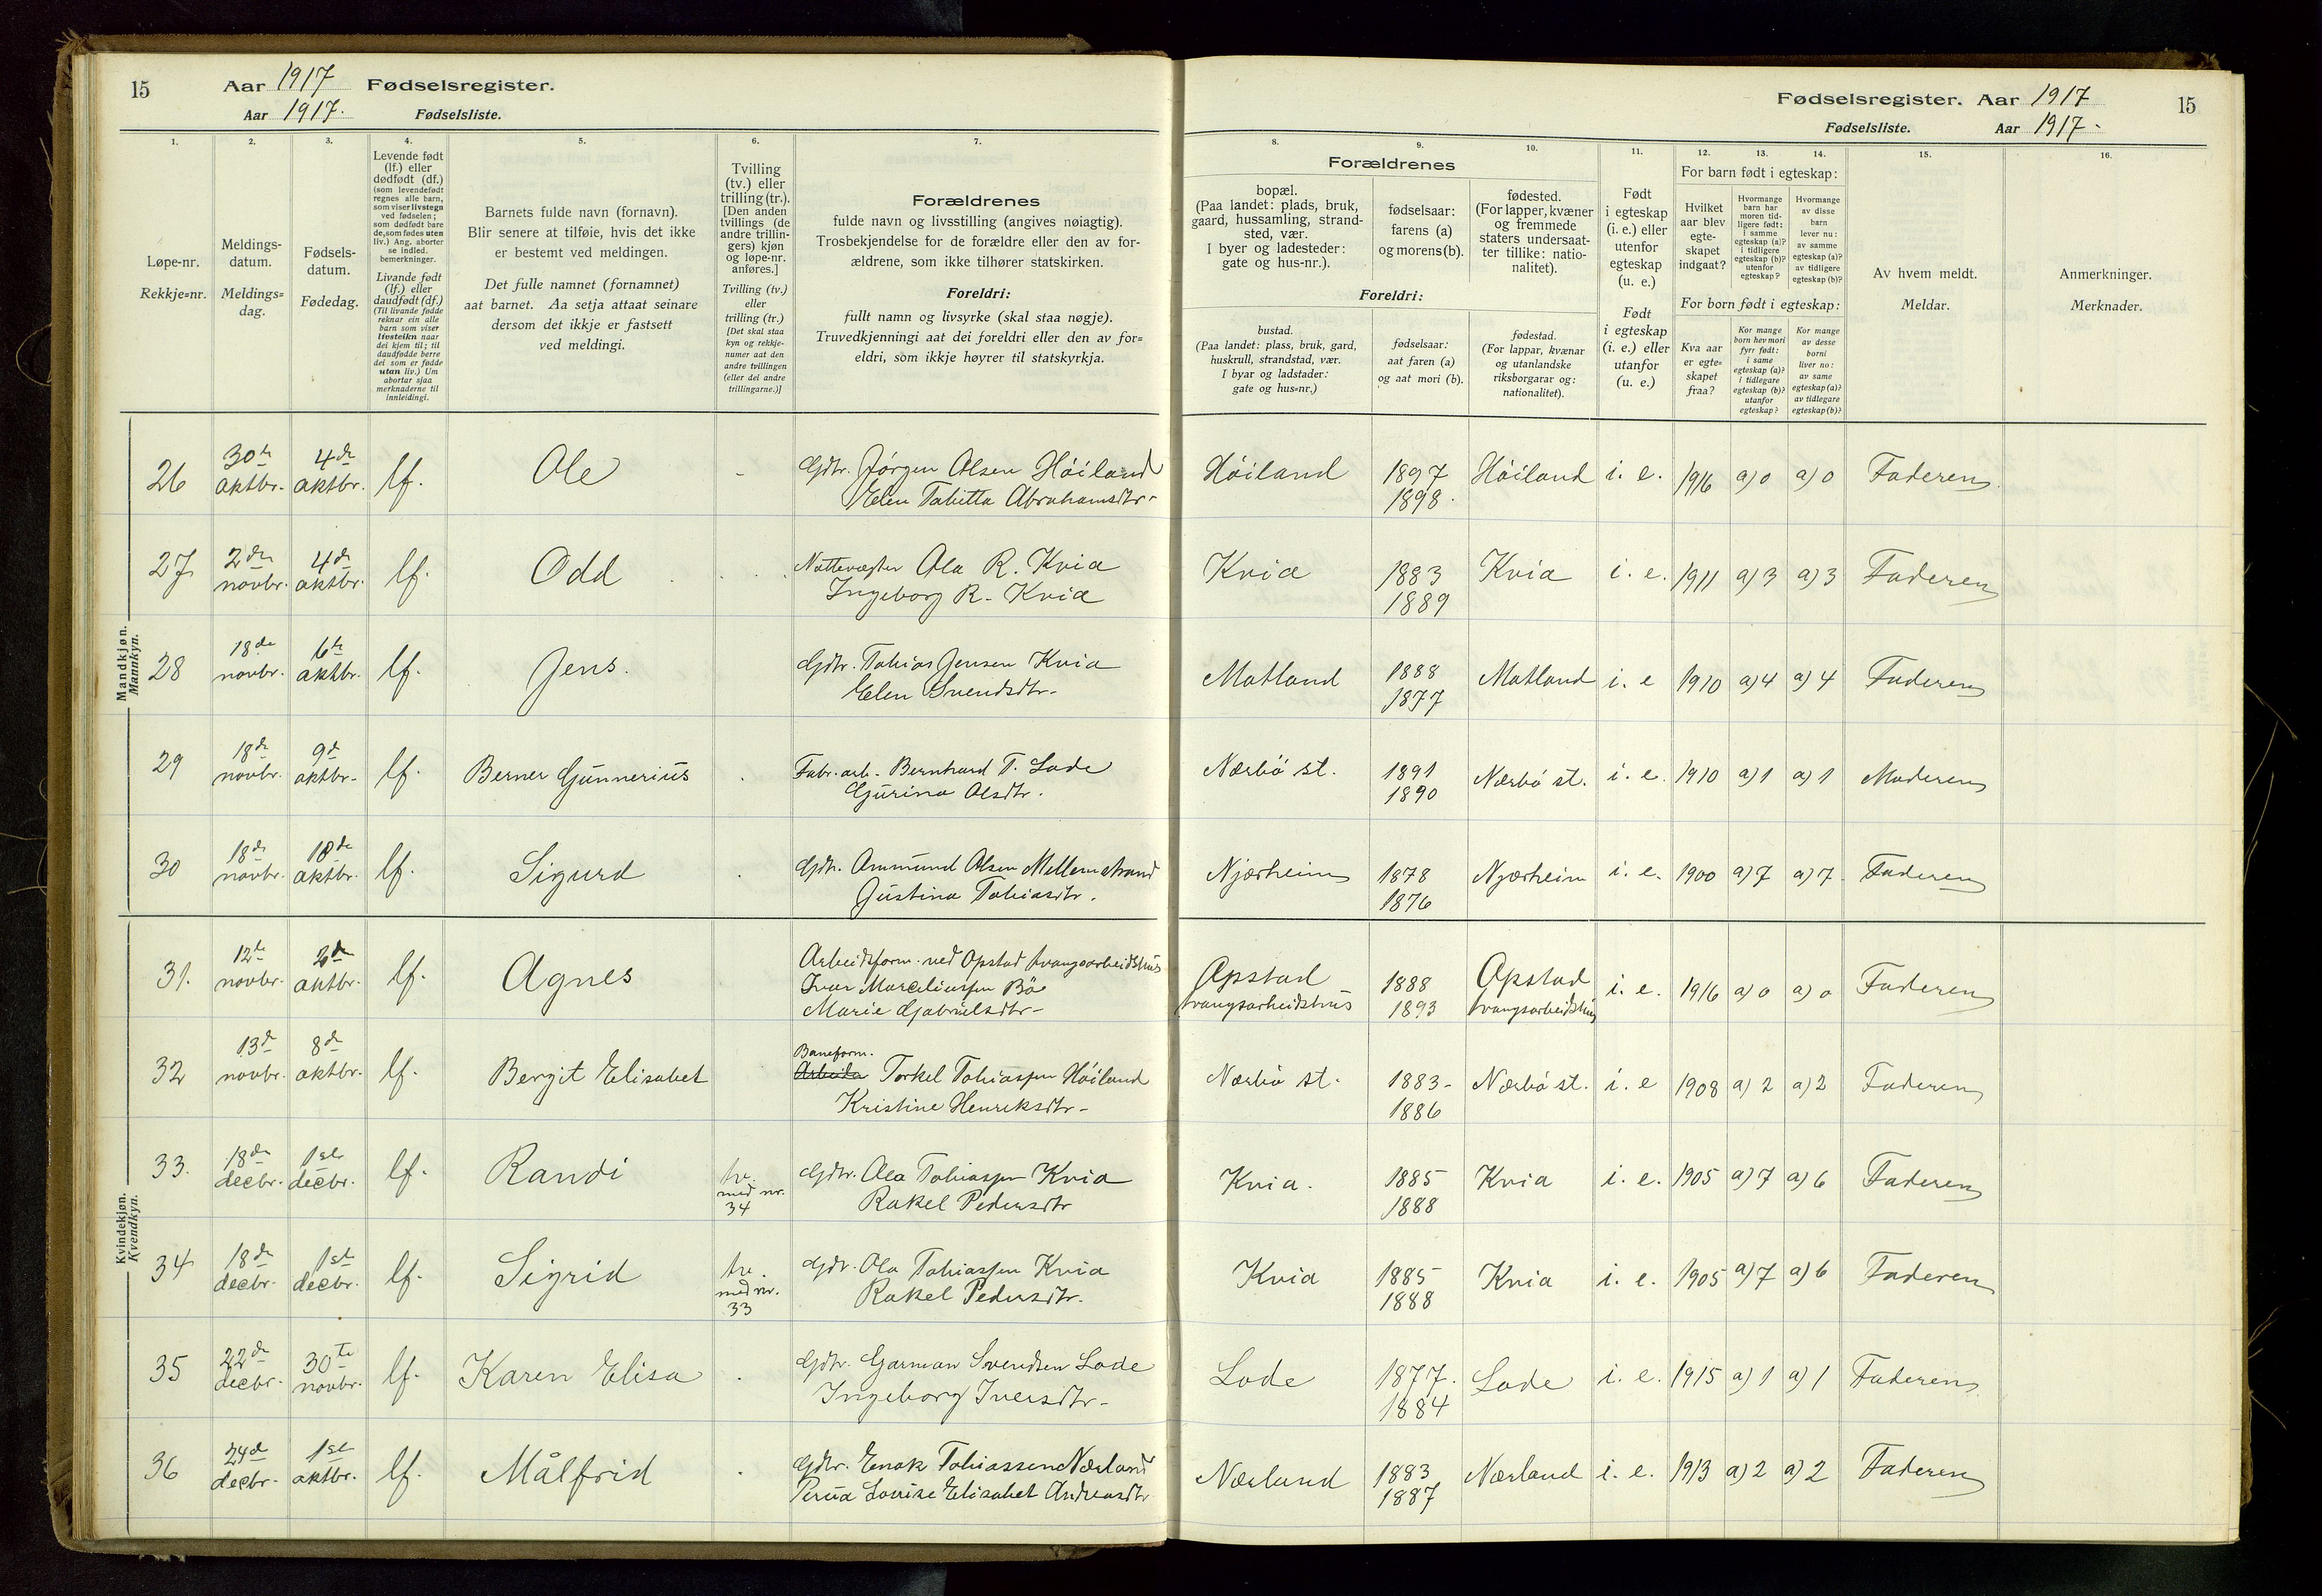 15 Aar 1917 Fødselsregister.
Aar 1917. Fødselsliste.
Fødselsregister. Aar 1917 15
Fødselsliste. Aar 1917 -
1. 2. 3. 4. 5. 6. 7. 8. 9. 10. 11. 12. 13. 14. 15. 16.
Løpe-nr.
Rekkje=nr.
Meldings-
datum.
Meldings=
dag.
Fødsels-
datum.
Fødedag.
Levende født
(lf.) eller
dødfødt (df.)
(som levendefødt
regnes alle barn,
som viser livstegn
ved fødselen;
som dødfødt bare
de, som fødes uten
liv.) Ang. aborter
se indled.
bemerkninger.
Livande født
(lf.) eller
daudfødt (df.)
(Til livande fødde
reknar ein alle
barn som viser
livsteikn naar
dei kjem til; til
daudfødde berre
dei som er fødde
utan liv.) Um
abortar sjaa
merknaderne til
innleidingi.
Barnets fulde navn (fornavn).
Blir senere at tilføie, hvis det ikke
er bestemt ved meldingen.
Det fulle namnet (fornamnet)
aat barnet. Aa setja attaat seinare
dersom det ikkje er fastsett
ved meldingi.
Tvilling
(tv.) eller
trilling (tr.).
[Den anden
tvillings (de
andre trillin-
gers) kjøn
og løpe-nr.
anføres.]
Tvilling (tv.)
eller
trilling (tr.)
[Det skal staa
kyn og rekkje-
numer aat den
andre tvillingen
(eller dei andre
trillingarne.)]
Forældrenes
fulde navn og livsstilling (angives nøiagtig).
Trosbekjendelse for de forældre eller den av for-
ældrene, som ikke tilhører statskirken.
Foreldri:
fullt namn og livsyrke (skal staa nøgje).
Truvedkjenningi aat dei foreldri eller den av for=
eldri, som ikkje høyrer til statskyrkja.
Forældrenes
bopæl.
(Paa landet: plads, bruk,
gaard, hussamling, strand-
sted, vær.
I byer og ladesteder:
gate og hus-nr.).
fødselsaar:
farens (a)
og morens (b).
fødested.
(For lapper, kvæner
og fremmede
staters undersaat-
ter tillike: natio-
nalitet).
Foreldri:
bustad.
(Paa landet: plass, bruk, gard,
huskrull, strandstad, vær.
I byar og ladstader:
gate og hus=nr.)
fødselsaar:
aat faren (a)
og aat mori (b).
fødestad.
(For lappar, kvænar
og utanlandske
riksborgarar og:
nationalitet).
Født
i egteskap
(i. e.) eller
utenfor
egteskap
(u. e.)
Født
i egteskap
(i. e.) eller
utanfor
(u. e.)
For barn født i egteskap:
Hvilket
aar blev
egte-
skapet
indgaat?
Hvormange
barn har
moren tid-
ligere født:
i samme
egteskap (a)?
i tidligere
egteskap (b)?
utenfor
egteskap?
Hvormange
av disse
barn
lever nu:
av samme
egteskap (a)?
av tidligere
egteskap (b)?
For born født i egteskap:
Kva aar
er egte-
skapet
fraa?
Kor mange
born hev mori
fyrr født:
i same
egteskap (a)?
i tidlegare
egteskap (b)?
utanfor
egteskap?
Kor mange
av desse
borni
liver no:
av same
egteskap (a)?
av tidlegare
egteskap (b)?
Av hvem meldt.
Meldar.
Anmerkninger.
Merknader.
Mandkjøn.
Mannkyn.
26 30te oktbr. 4de oktbr. lf. Ole - Gdbr. Jørgen Olsen Høiland Høiland 1897 Høiland i. e. 1916 a) 0 a) 0 Faderen
Elen Tabitta Abrahamsdtr- 1898.
27 2den novbr. 4de oktbr. lf. Odd Nattevægter Ola R. Kvia Kvia 1883 Kvia i. e. 1911 a) 3 a) 3 Faderen
Ingeborg R. Kvia 1889
28 18de novbr. 6te oktbr. lf. Jens. Gdbr. Tobias Jensen Kvia Motland 1888 Motland i. e 1910 a) 4 a) 4 Faderen
Elen Svendsdtr- 1877
29 18de novbr. 9de oktbr- lf. Berner Gunnerius Fabr. arb. Bernhard T. Lode Nærbø st. 1891 Nærbø st. i. e. 1910 a) 1 a) 1 Moderen
Gurina Olsdtr. 1890
30 18de novbr. 18de oktbr. lf. Sigurd Gdbr. Ommund Olsen Mellemstrand Njærheim 1878 Njærheim i. e. 1900 a) 7 a) 7 Faderen
Gustina Tobiasdtr. 1876
Kvindekjøn.
Kvendkyn.
31. 12te novbr. 2den oktbr. lf. Agnes Arbeidsform. ved Opstad tvangsarbeidshus Opstad tvangsarbeidshus 1888 Opstad tvangsarbeidshus i. e. 1916 a) 0 a) 0 Faderen
Ivar Marceliussen Bø
Marie Gabrielsdtr- 1893
32 13de novbr. 8de oktbr. lf. Bergit Elisabet Baneform. Arbeider Torkel Tobiassen Høiland Nærbø st. 1883- Nærbø st. i. e 1908 a) 2 a) 2 Faderen
Kristine Henriksdtr- 1886
33. 18de decbr. 1ste decbr. lf. Randi tv. med nr. 34 Gdbr. Ola Tobiassen Kvia Kvia. 1885 Kvia i. e. 1905 a) 7 a) 6 Faderen
Rakel Pedersdtr 1888
34 18de decbr. 1ste decbr. lf. Sigrid tv. med nr. 33 Gdbr. Ola Tobiassen Kvia Kvia 1885 Kvia i. e. 1905 a) 7 a) 6 Faderen
Rakel Pedersdtr. 1888
35 22de decbr. 30te novbr. lf. Karen Elisa Gdbr. Garman Svendsen Lode Lode 1877. Lode i. e. 1915 a) 1 a) 1 Faderen
Ingeborg Iversdtr- 1884
36 24de decbr. 1ste oktbr. lf. Målfrid Gdbr. Enok Tobiassen Nærland Nærland 1883 Nærland i. e. 1913 a) 2 a) 2 Faderen
Louise Elisabet Andreasdtr 1887